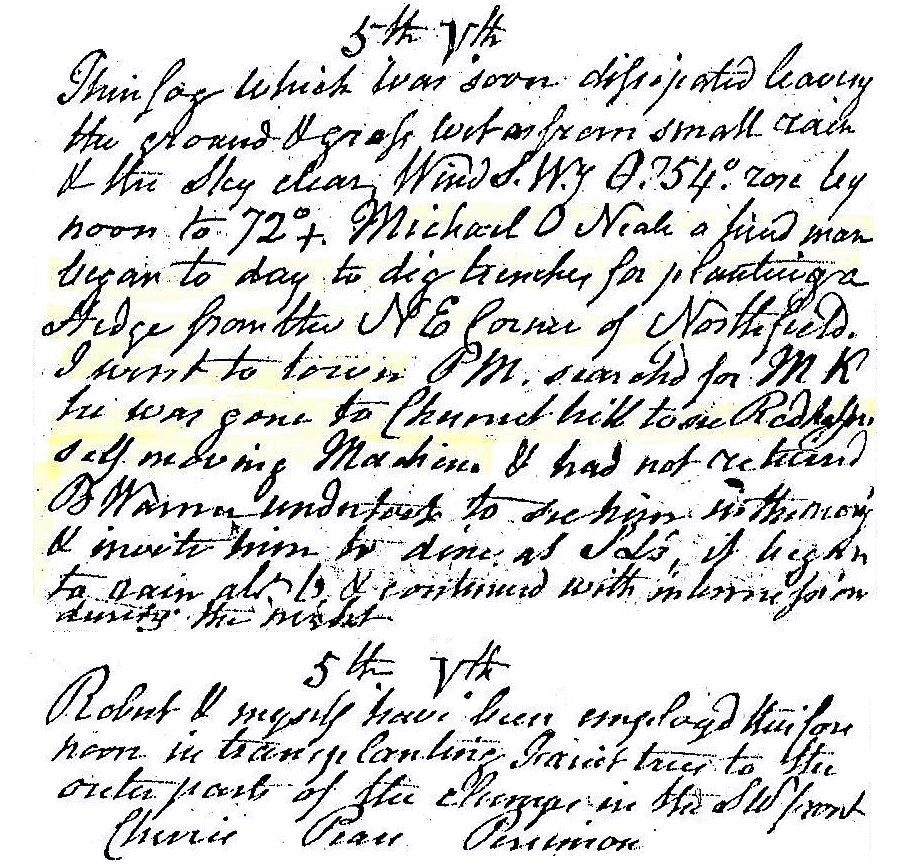 5th Vth
Thin fog which was soon dissipated leaving
the ground & grass wet as from small rain
& the sky clear, Wind S.W.y 54° rose by
noon to 72°+. Michael O Neale a hired man
began to day to dig trenches for planting a
Hedge from the N E Corner of Northfield.
I went to town P M. searched for M K
he was gone to Chesnut hill to see
self moving Machine & had not returned
B Warner undertook to see him in the morng
& invite him to dine at it began
to rain abt 6 & continued with intermission
during the night
5th Vth
Robert & myself have been employd this fore
noon in transplanting Fruit trees to the
outer parts of the Clumps in the SW front
Cherrie Pear Persimon